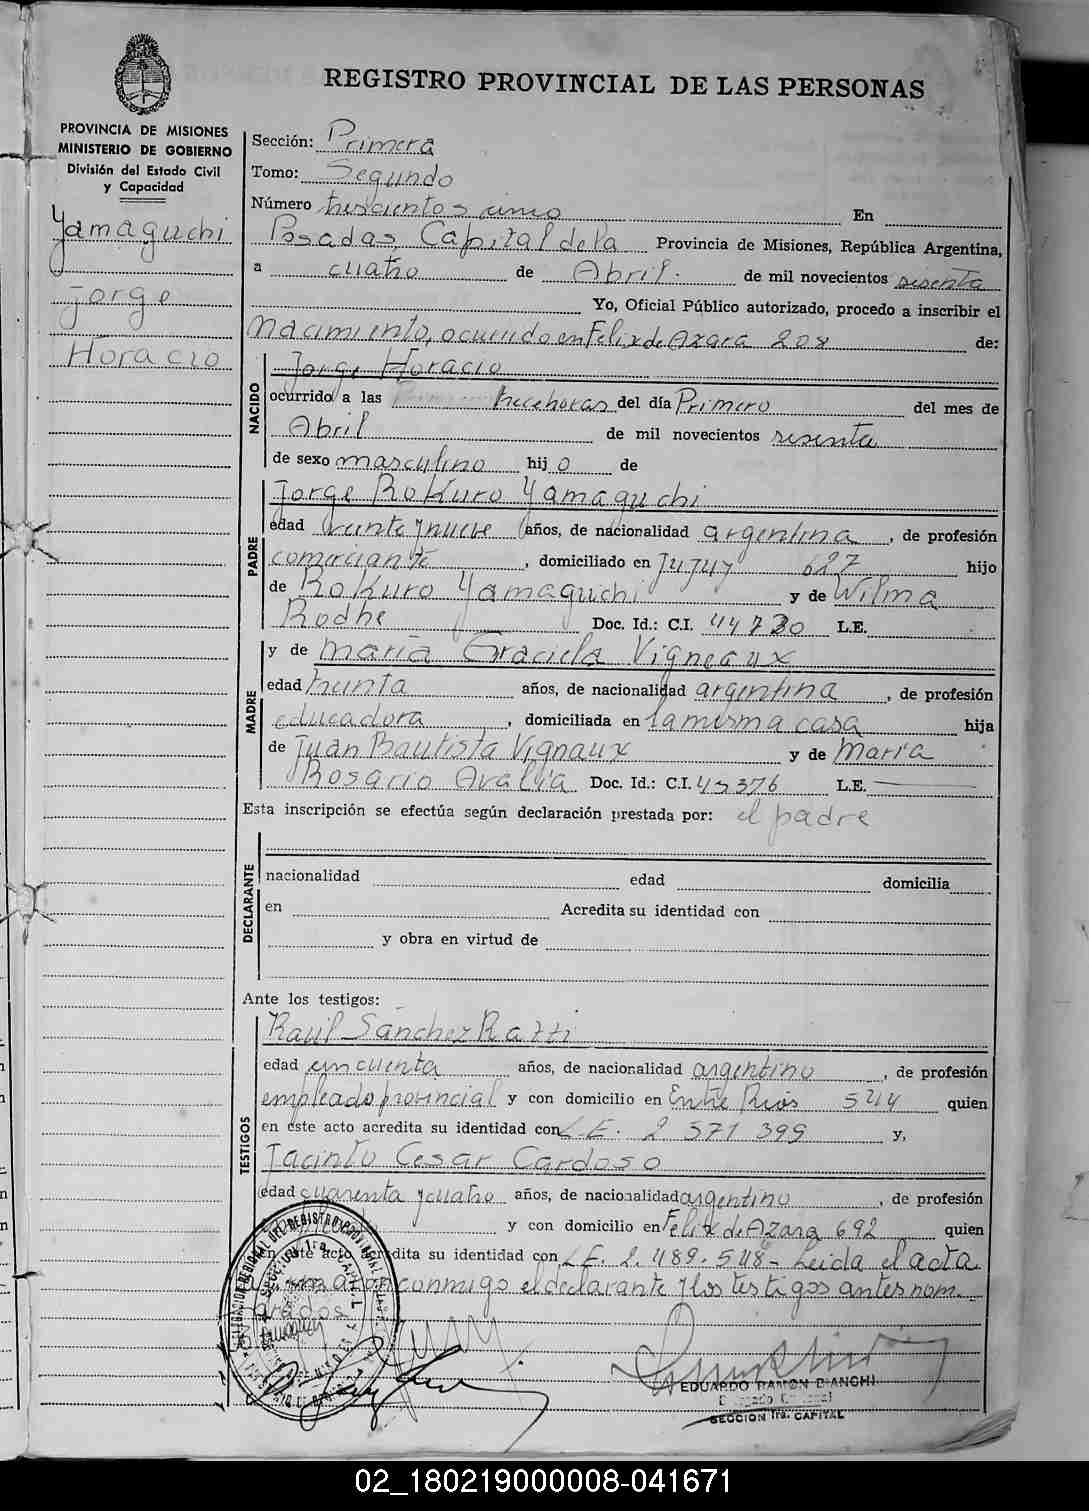 REGISTRO PROVINCIAL DE LAS PERSONAS
PROVINCIA DE MISIONES
MINISTERIO DE GOBIERNO
División del Estado Civil
y Capacidad
Yamaguchi
Jorge
Horacio
Sección: Primera
Tomo: Segundo
Número trescientos uno En
Posadas Capital de la Provincia de Misiones, República Argentina,
a cuatro de Abril. de mil novecientos sesenta
Yo, Oficial Público autorizado, procedo a inscribir el
Nacimiento, ocurrido en Felix de Azara 208 de:
NACIDO
Jorge Horacio
ocurrido a las trece horas del día Primero del mes de
Abril de mil novecientos sesenta
de sexo masculino hij o de
PADRE
Jorge Rokuro Yamaguchi
edad veinte y nueve años, de nacionalidad argentina, de profesión
comerciante, domiciliado en Jujuy 627 hijo
de Rokuro Yamaguchi y de Wilma
Rodhe Doc. Id.: C.I. 44730 L.E.
MADRE
y de María Graciela Vigneaux
edad treinta años, de nacionalidad argentina, de profesión
educadora, domiciliada en la misma casa hija
de Juan Bautista Vignaux y de María
Rosario Avalía Doc. Id.: C.I. 45376 L.E.
Esta inscripción se efectúa según declaración prestada por: el padre
DECLARANTE
nacionalidad edad domicilia
en Acredita su identidad con
y obra en virtud de
Ante los testigos:
TESTIGOS
Raúl Sánchez Ratti
edad cincuenta años, de nacionalidad argentino, de profesión
empleado provincial y con domicilio en Entre Ríos 544 quien
en este acto acredita su identidad con L.E. 2 571 399 y,
Jacinto Cesar Cardoso
edad cuarenta y cuatro años, de nacionalidad argentino, de profesión
y con domicilio en Felix de Azara 692 quien
en este acto acredita su identidad con L.E. 2.489.548- Leida el acta
conmigo el declarante y los testigos antes nom-
brados
EDUARDO RAMON BIANCHI
SECCION 1ra. CAPITAL
02_180219000008-041671